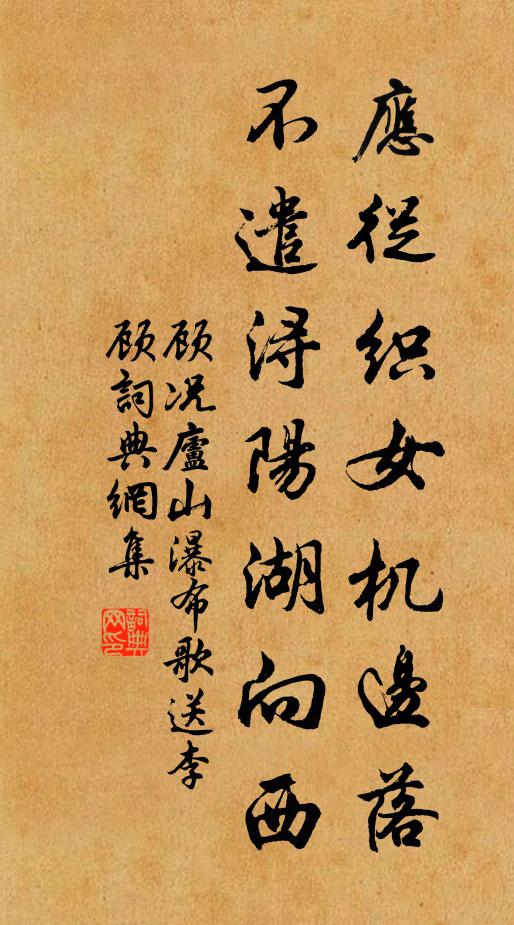 應從织女机邊落
不遣浔陽湖向西
顾况廬山瀑布歌送李
顾詞典網集
詞典
网印